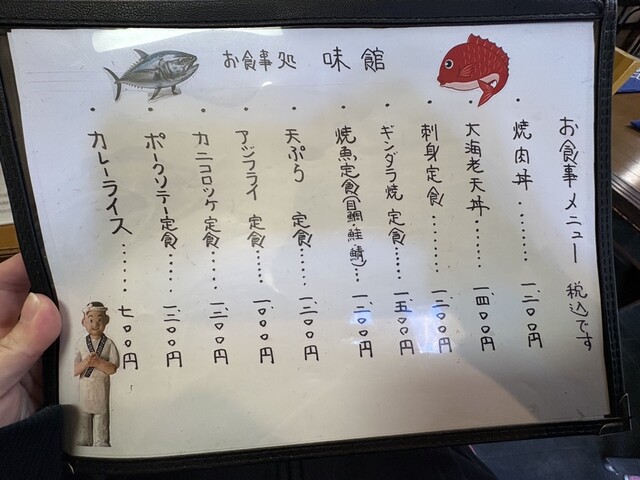 お食事処 味館
お食事メニュー 税込です
・焼肉丼・・・・・・一、二〇〇円
・大海老天丼・・・・・一、四〇〇円
・刺身定食・・・・・・一、二〇〇円
・ギンダラ焼定食・・・・一、五〇〇円
・焼魚定食(目鯛 鮭 鯖)・・・一、二〇〇円
・天ぷら 定食・・・・・一、二〇〇円
・アジフライ 定食・・・・・一、〇〇〇円
・カニコロッケ定食・・・・一、二〇〇円
・ポークソテー定食・・・・一、二〇〇円
・カレーライス・・・・・七〇〇円